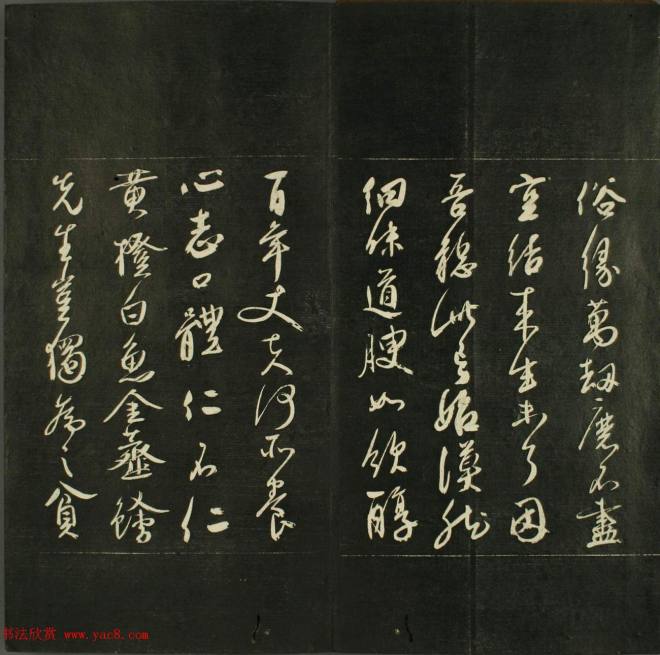 俗緣萬劫磨不盡
空結来生未了因
吾此言始漠然
細味道腴如飲醇
百年丈夫何所養
心志口體仁不仁
黄橙白魚金虀鱠
先生豈獨為之貧
书法欣赏 www.yac8.com